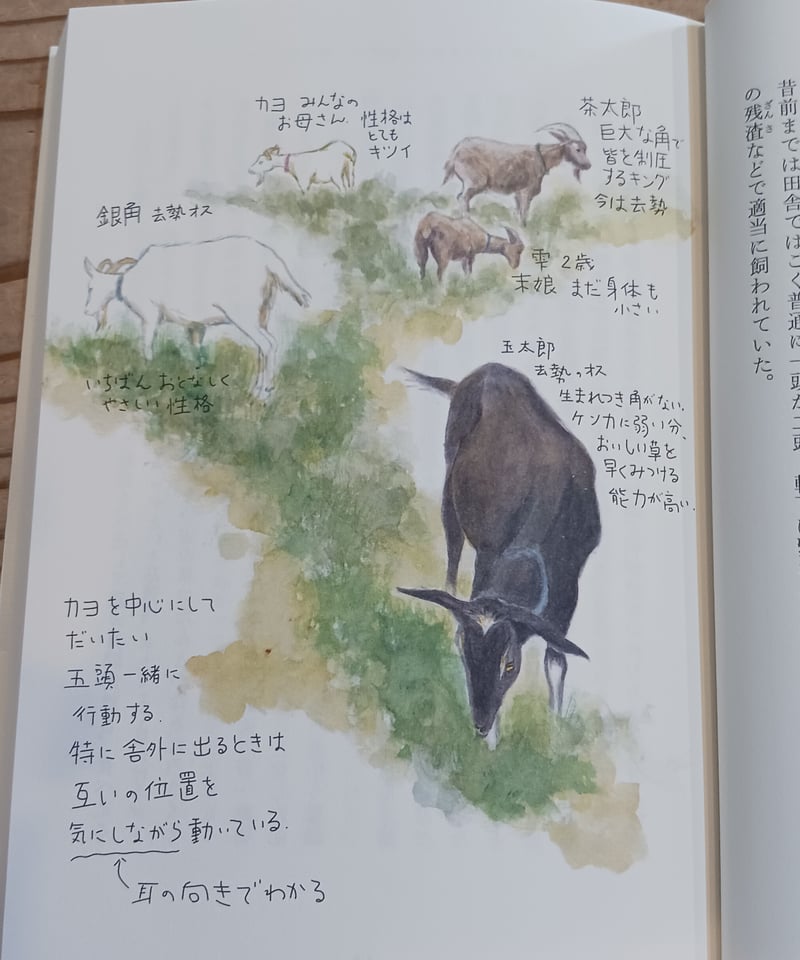 カヨ みんなの
お母さん. 性格は
とても
キツイ
茶太郎
巨大な角で
皆を制圧
するキング
今は去勢
銀角 去勢オス
いちばん おとなしく
やさしい 性格
雫 2歳
末娘 まだ身体も
小さい
玉太郎
去勢オス
生まれつき角がない.
ケンカに弱い分、
おいしい草を
早くみつける
能力が高い.
カヨを中心にして
だいたい
五頭一緒に
行動する.
特に舎外に出るときは
互いの位置を
気にしながら動いている.
耳の向きでわかる
昔前までは田舎ではごく普通に一頭か二頭
の残渣などで適当に飼われていた。
ざんさ